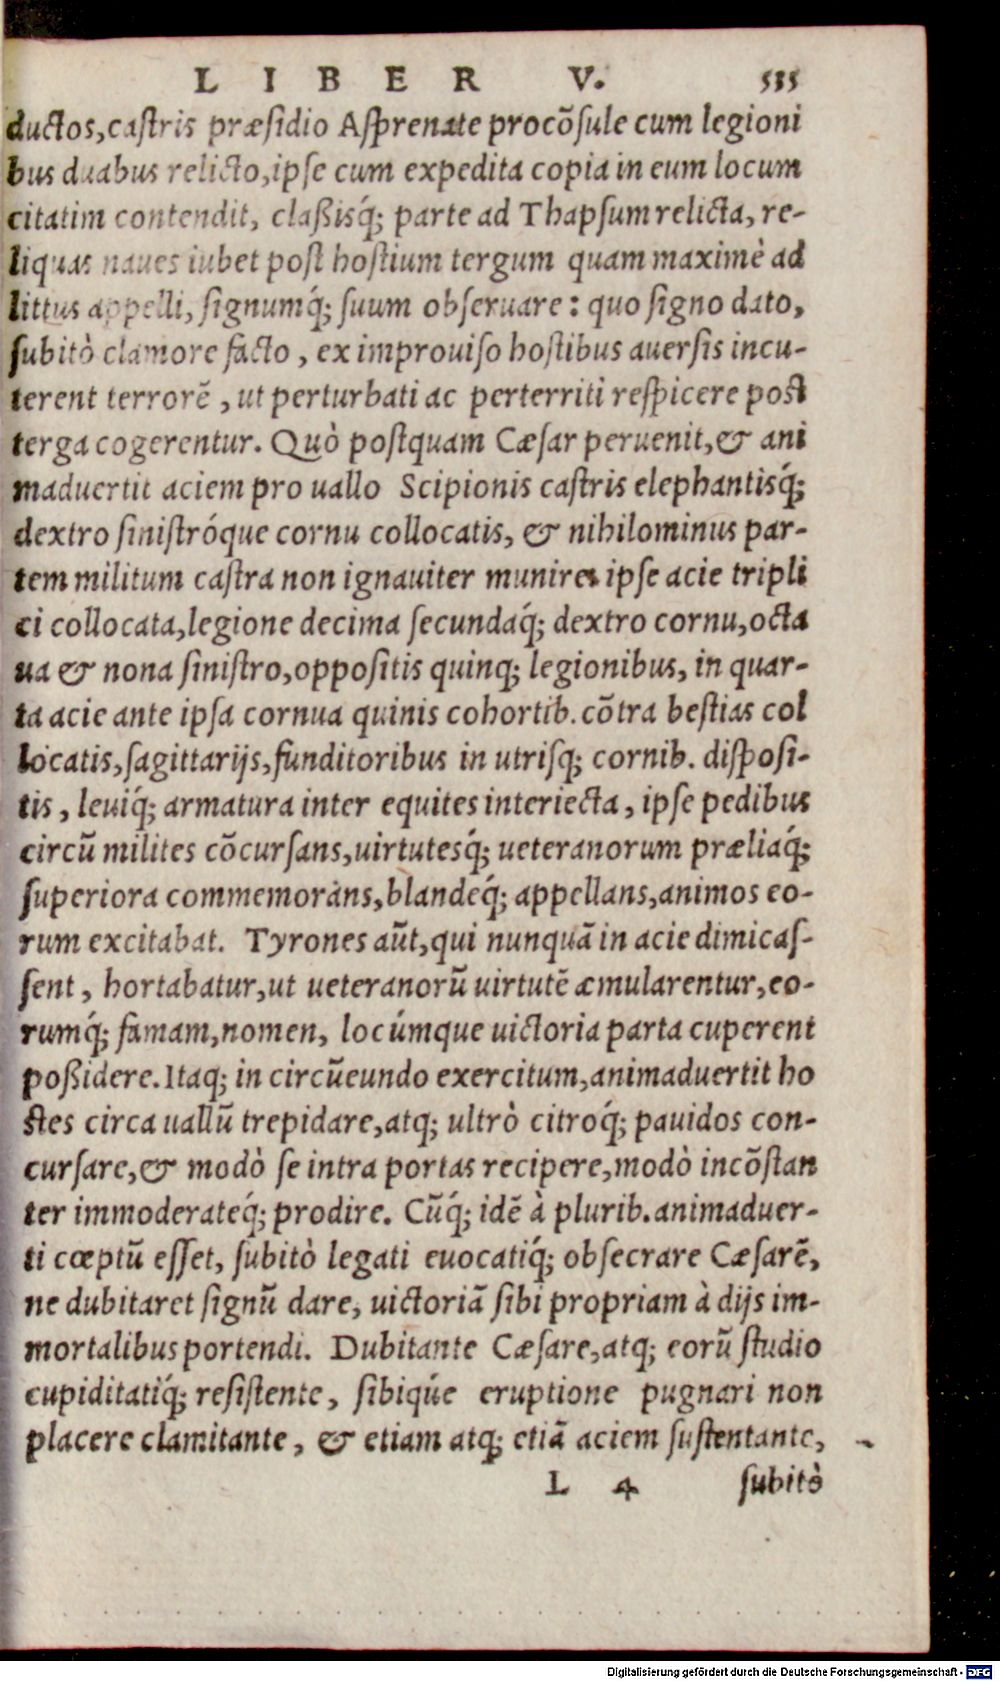 LIBER V. 535
ductos, castris præsidio Asprenate procõsule cum legioni
bus duabus relicto, ipse cum expedita copia in eum locum
citatim contendit, claßisq́; parte ad Thapsum relicta, re-
liquas naues iubet post hostium tergum quam maximè ad
littus appelli, signumq́; suum obseruare: quo signo dato,
subitò clamore facto, ex improuiso hostibus auersis incu-
terent terrorẽ, ut perturbati ac perterriti respicere post
terga cogerentur. Quò postquam Cæsar peruenit, & ani
maduertit aciem pro uallo Scipionis castris elephantisq́;
dextro sinistróque cornu collocatis, & nihilominus par-
tem militum castra non ignauiter munire, ipse acie tripli
ci collocata, legione decima secundaq́; dextro cornu, octa
ua & nona sinistro, oppositis quinq; legionibus, in quar-
ta acie ante ipsa cornua quinis cohortib. cõtra bestias col
locatis, sagittarijs, funditoribus in utrisq; cornib. disposi-
tis, leuiq́; armatura inter equites interiecta, ipse pedibus
circũ milites cõcursans, uirtutesq́; ueteranorum præliaq́;
superiora commemorans, blandeq́; appellans, animos eo-
rum excitabat. Tyrones aũt, qui nunquã in acie dimicas-
sent, hortabatur, ut ueteranorũ uirtutẽ æmularentur, eo-
rumq́; famam, nomen, locúmque uictoria parta cuperent
poßidere. Itaq; in circũeundo exercitum, animaduertit ho
stes circa uallũ trepidare, atq; ultrò citroq́; pauidos con-
cursare, & modò se intra portas recipere, modò incõstan
ter immoderateq́; prodire. Cũq́; idẽ à plurib. animaduer-
ti cœptũ esset, subitò legati euocatiq́; obsecrare Cæsarẽ,
ne dubitaret signũ dare, uictoriã sibi propriam à dijs im-
mortalibus portendi. Dubitante Cæsare, atq; eorũ studio
cupiditatiq́; resistente, sibiqúe eruptione pugnari non
placere clamitante, & etiam atq; etiã aciem sustentante,
L 4 subitò
Digitalisierung gefördert durch die Deutsche Forschungsgemeinschaft - DFG